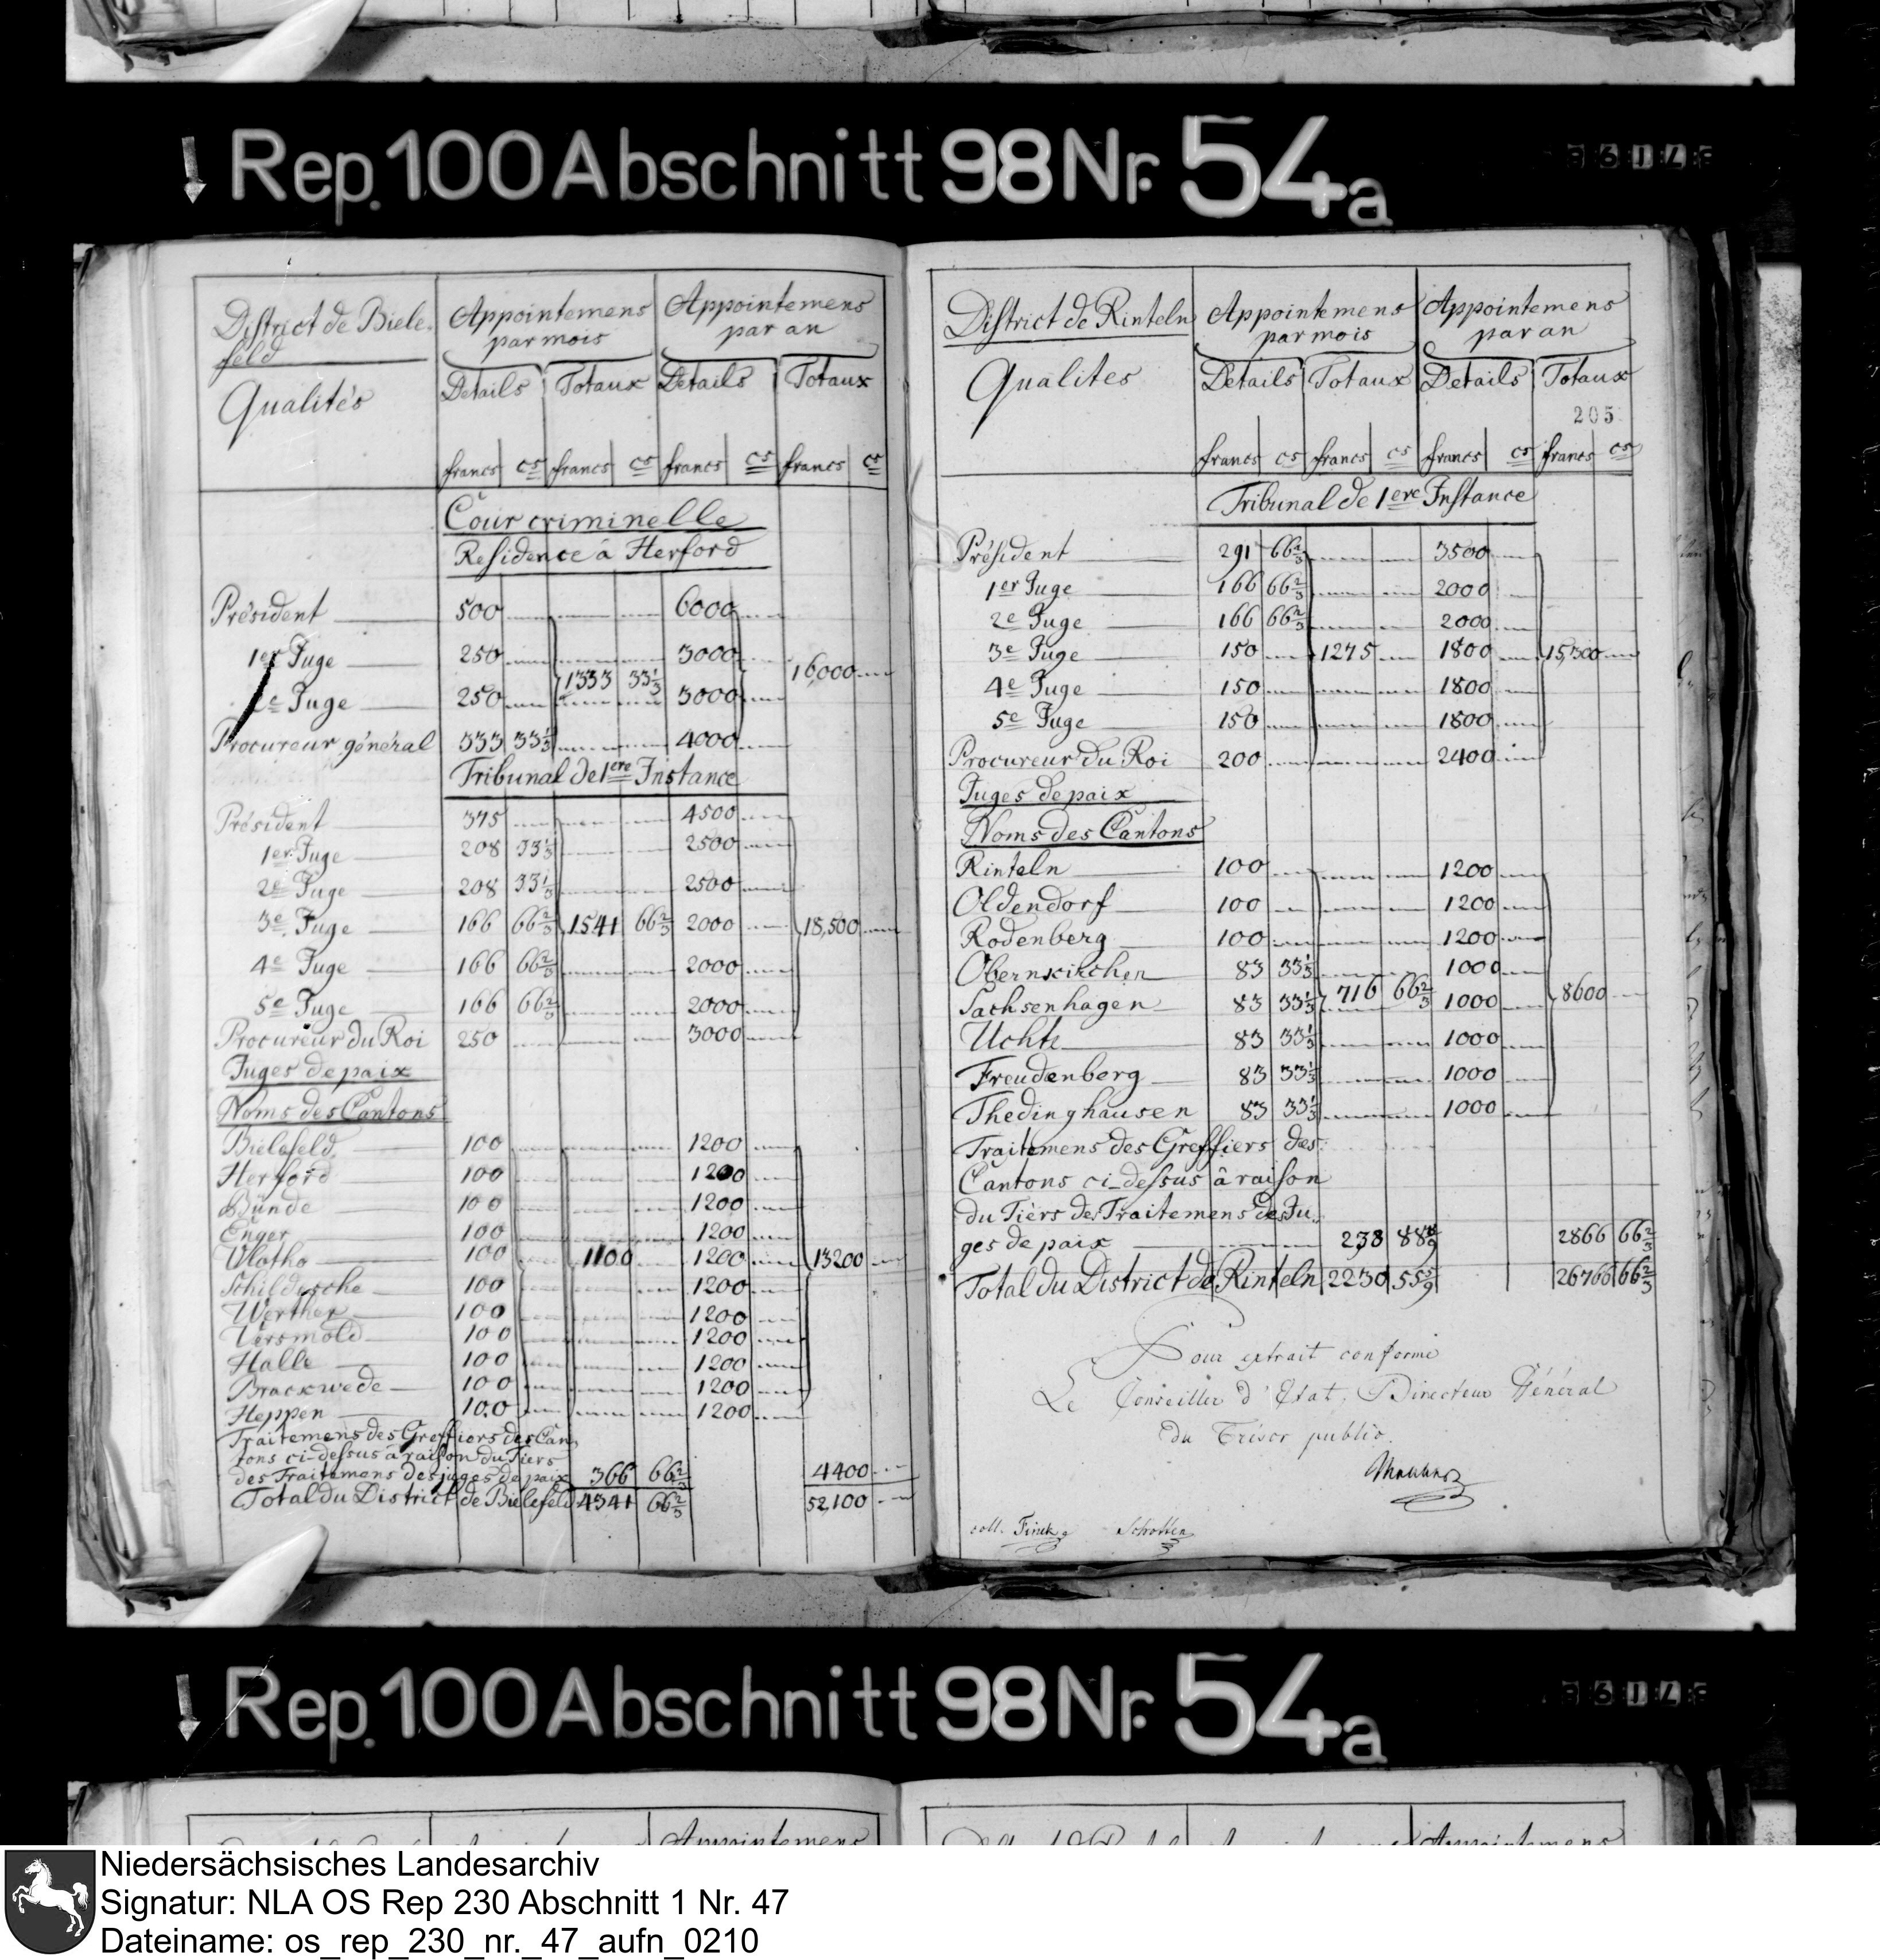 Rep. 100 Abschnitt 98 Nr. 54a
District de Biele-
feld
Qualités
Appointemens
par mois
Appointemens
par an
Details Totaux Details Totaux
francs cs francs cs francs cs francs cs
Cour criminelle
Residence à Herford
Président 500 6000
1er Juge 250 3000
1333 33 1/3 16,000
2e Juge 250 3000
Procureur général 333 33 1/3 4000
Tribunal de 1ere Instance
Président 375 4500
1er Juge 208 33 1/3 2500
2e Juge 208 33 1/3 2500
3e Juge 166 66 2/3 1541 66 2/3 2000 18,500
4e Juge 166 66 2/3 2000
5e Juge 166 66 2/3 2000
Procureur du Roi 250 3000
Juges de paix
Noms des Cantons
Bielefeld 100 1200
Herford 100 1200
Bünde 100 1200
Enger 100 1200
Vlotho 100 1100 1200 13200
Schildesche 100 1200
Werther 100 1200
Versmold 100 1200
Halle 100 1200
Brackwede 100 1200
Heppen 100 1200
Traitemens des Greffiers des Can-
tons ci-dessus à raison du Tiers
des Traitemens des juges de paix 366 66 2/3 4400
Total du District de Bielefeld 4341 66 2/3 52,100
District de Rinteln
Qualites
Appointemens
par mois
Appointemens
par an
Details Totaux Details Totaux
205
francs cs francs cs francs cs francs cs
Tribunal de 1ere Instance
Président 291 66 2/3 3500
1er Juge 166 66 2/3 2000
2e Juge 166 66 2/3 2000
3e Juge 150 1275 1800 15,300
4e Juge 150 1800
5e Juge 150 1800
Procureur du Roi 200 2400
Juges de paix
Noms des Cantons
Rinteln 100 1200
Oldendorf 100 1200
Rodenberg 100 1200
Obernkirchen 83 33 1/3 1000
Sachsenhagen 83 33 1/3 716 66 2/3 1000 8600
Uchte 83 33 1/3 1000
Freudenberg 83 33 1/3 1000
Thedinghausen 83 33 1/3 1000
Traitemens des Greffiers des
Cantons ci-dessus à raison
du Tiers des Traitemens des Ju-
ges de paix 238 88 8/9 2866 66 2/3
Total du District de Rinteln 2230 55 5/9 26766 66 2/3
Pour extrait conforme
Le Conseiller d'Etat, Directeur Général
du Trésor public.
coll. Finck Schotten
Rep. 100 Abschnitt 98 Nr. 54a
Appointemens
Appointemens
Niedersächsisches Landesarchiv
Signatur: NLA OS Rep 230 Abschnitt 1 Nr. 47
Dateiname: os_rep_230_nr._47_aufn_0210